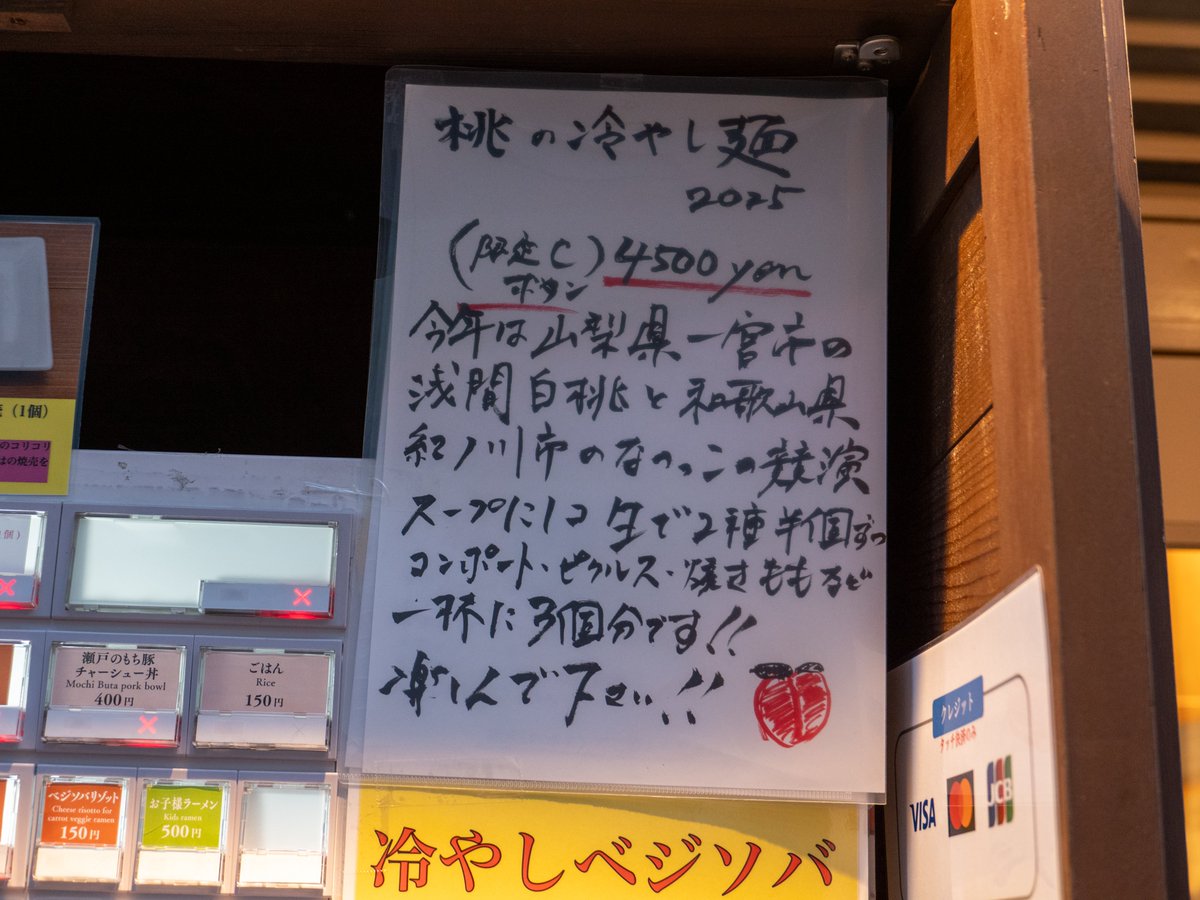 桃の冷やし麺
2025
(限定C) 4500 yen
ボタン
今年は山梨県一宮市の
浅間白桃と和歌山県
紀ノ川市のなつっこの競演
スープに1コ 生で2種半個ずつ
コンポート・ピクルス・焼きももなど
一杯に3個分です!!
楽しんで下さい!!
(1個)
のコリコリ
はの焼売を
個)
瀬戸のもち豚
チャーシュー丼
Mochi Buta pork bowl
400円
ごはん
Rice
150円
ベジソバリゾット
Cheese risotto for
carrot veggie ramen
150円
お子様ラーメン
Kids ramen
500円
冷やしベジソバ
クレジット
タッチ決済のみ
VISA
JCB